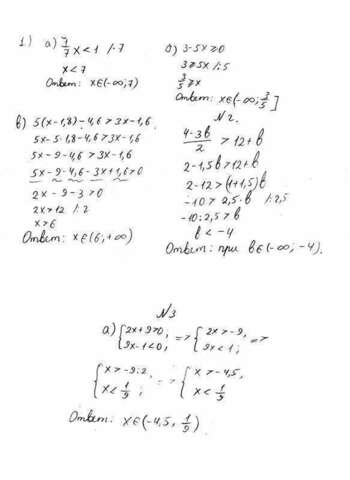 1) а) 7/7 x < 1 /·7
x < 7
Ответ: x∈(-∞; 7)
б) 3-5x ≥ 0
3 ≥ 5x /:5
3/5 ≥ x
Ответ: x∈(-∞; 3/5]
в) 5(x-1,8)-4,6 > 3x-1,6
5x-5·1,8-4,6 > 3x-1,6
5x-9-4,6 > 3x-1,6
5x-9-4,6-3x+1,6 > 0
2x-9-3 > 0
2x > 12 /:2
x > 6
Ответ: x∈(6; +∞)
№2.
4-3b/2 > 12+b
2-1,5b > 12+b
2-12 > (1+1,5)b
-10 > 2,5·b /:2,5
-10:2,5 > b
b < -4
Ответ: при b∈(-∞; -4).
№3
а) {2x+9>0, 9x-1<0; => {2x>-9, 9x<1; =>
{x>-9:2, x<1/9; => {x>-4,5, x<1/9
Ответ: x∈(-4,5; 1/9)